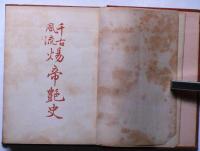 千古風流
煬帝艶史